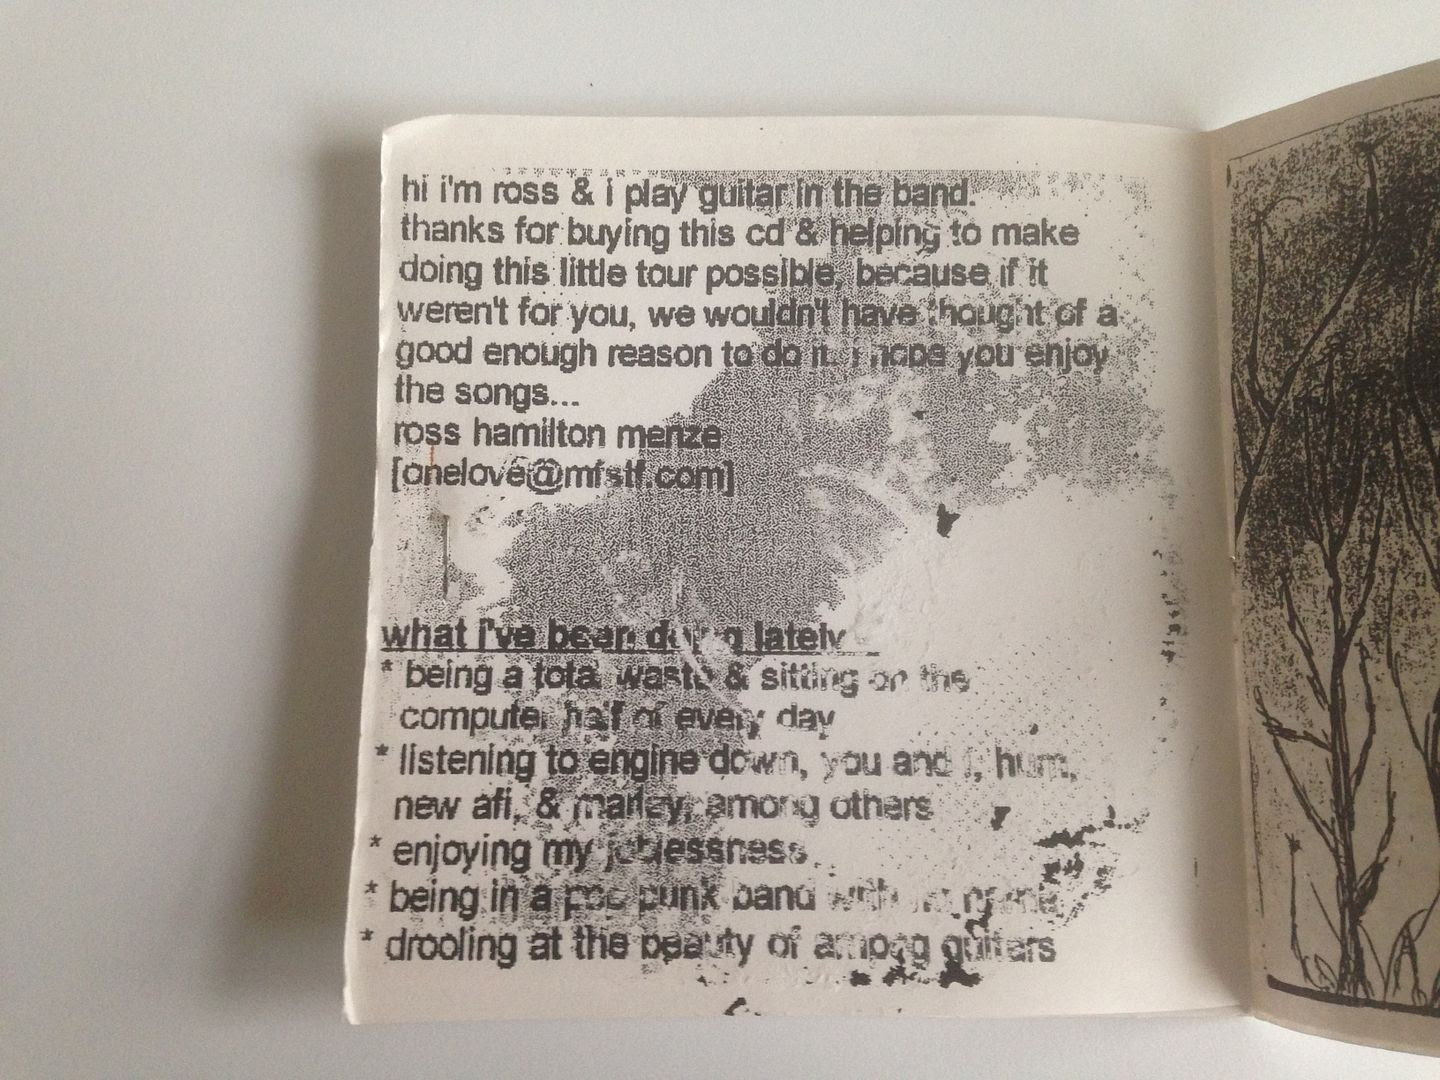 hi i'm ross & i play guitar in the band.
thanks for buying this cd & helping to make
doing this little tour possible, because if it
weren't for you, we wouldn't have thought of a
good enough reason to do it. i hope you enjoy
the songs...
ross hamilton menze
[onelove@mfstf.com]
what i've been doing lately
* being a total waste & sitting on the
computer half of every day
* listening to engine down, you and i, hum,
new afi, & marley, among others
* enjoying my joblessness
* being in a pop punk band with no name
* drooling at the beauty of ampeg guitars